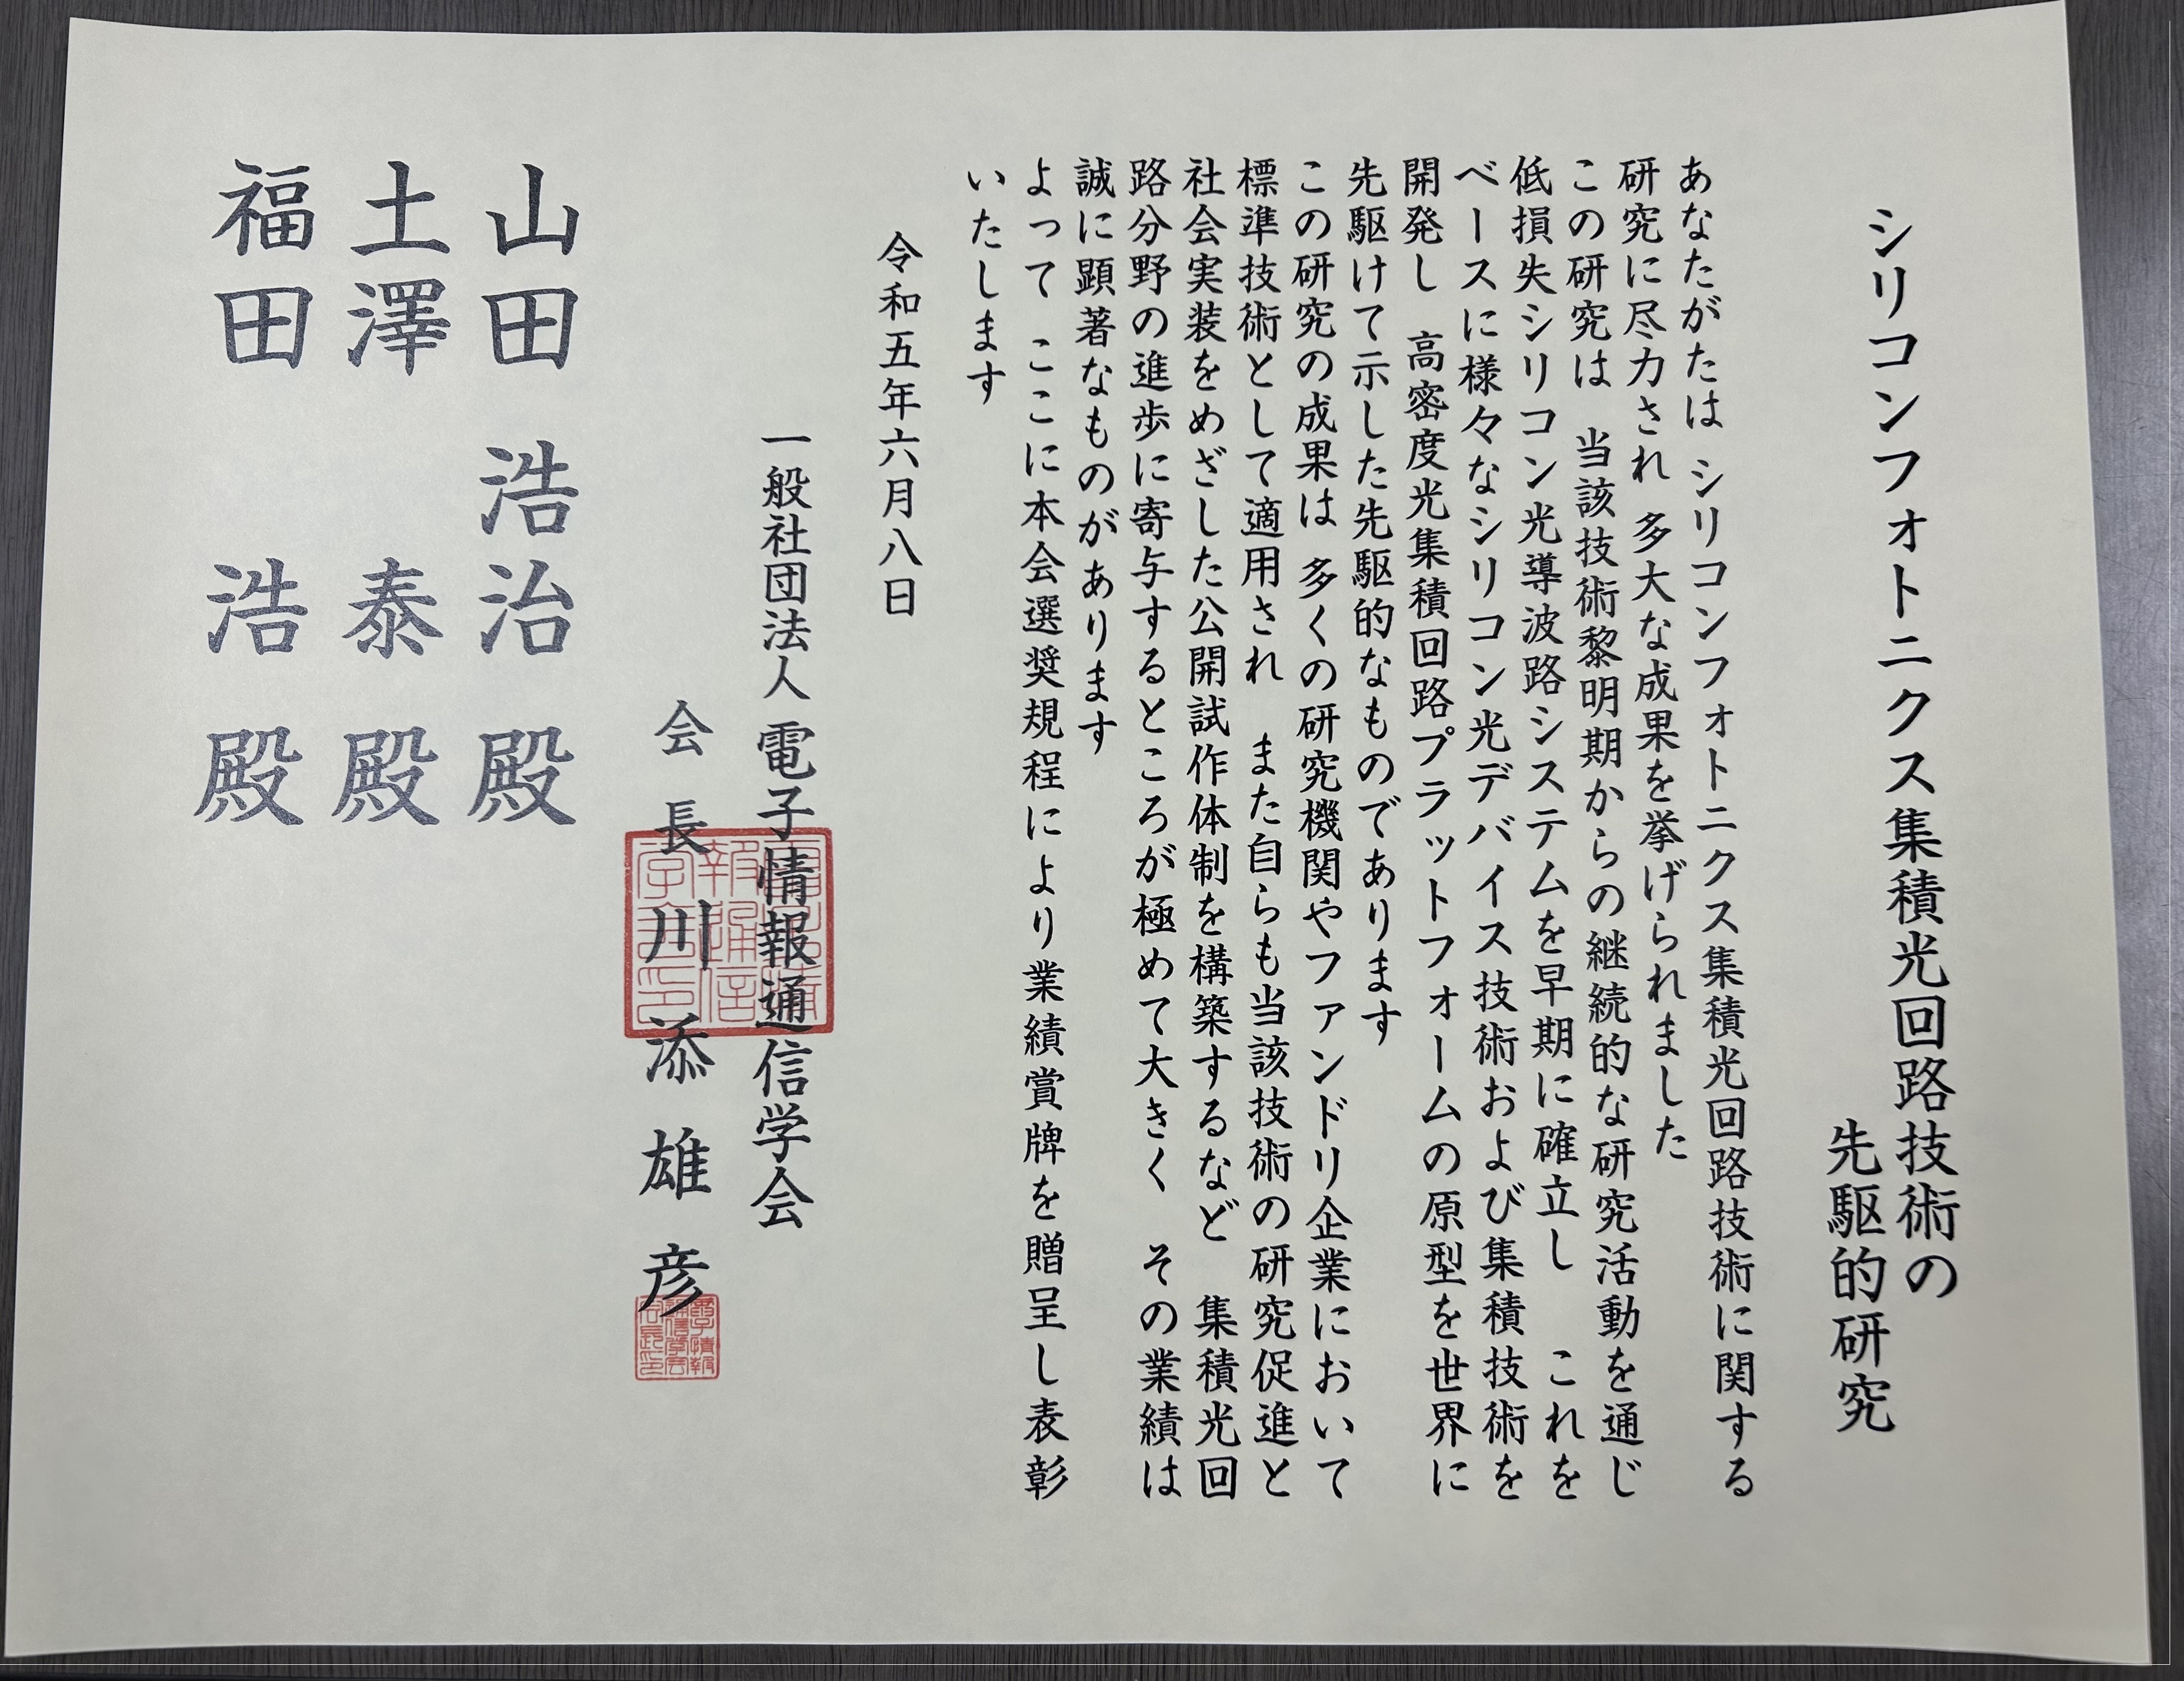 シリコンフォトニクス集積光回路技術の
先駆的研究
あなたがたは シリコンフォトニクス集積光回路技術に関する
研究に尽力され 多大な成果を挙げられました
この研究は 当該技術黎明期からの継続的な研究活動を通じ
低損失シリコン光導波路システムを早期に確立し これを
ベースに様々なシリコン光デバイス技術および集積技術を
開発し 高密度光集積回路プラットフォームの原型を世界に
先駆けて示した先駆的なものであります
この研究の成果は 多くの研究機関やファンドリ企業において
標準技術として適用され また自らも当該技術の研究促進と
社会実装をめざした公開試作体制を構築するなど 集積光回
路分野の進歩に寄与するところが極めて大きく その業績は
誠に顕著なものがあります
よって ここに本会選奨規程により業績賞牌を贈呈し表彰
いたします
令和五年六月八日
一般社団法人 電子情報通信学会
会長 川添雄彦
山田 浩治 殿
土澤 泰 殿
福田 浩 殿